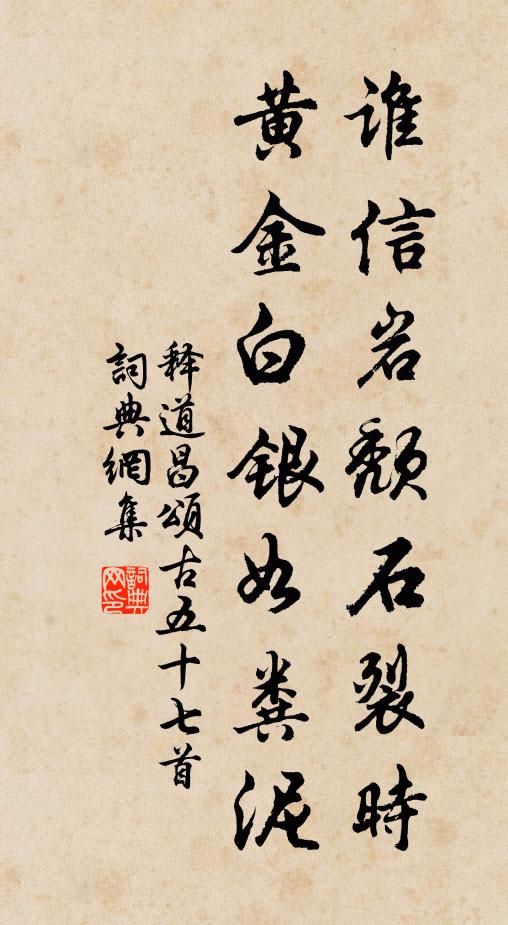 谁信岩颓石裂時
黄金白銀如糞泥
释道昌頌古五十七首
詞典網集
詞典网印